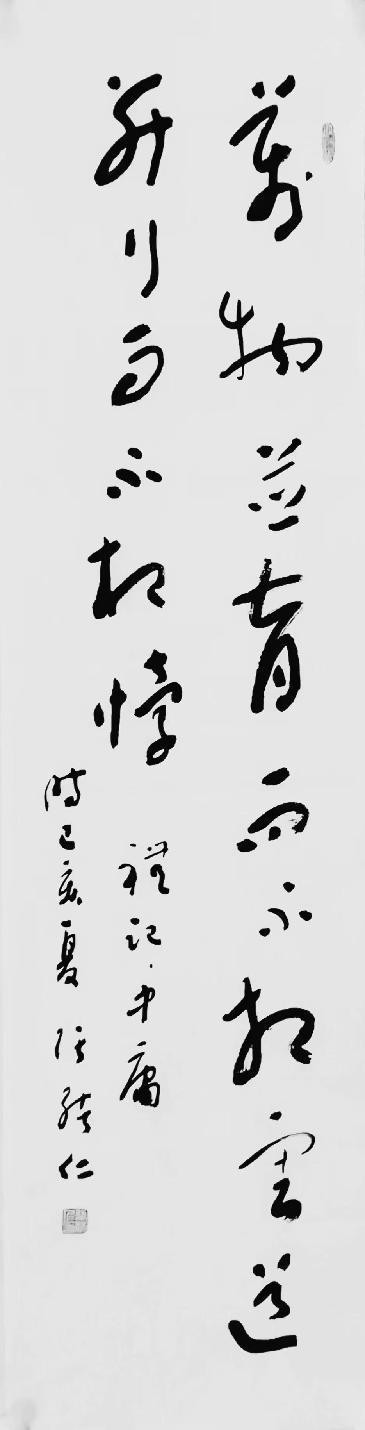 萬物並育而不相害道
並行而不相悖
禮記·中庸
時己亥夏 張 仁